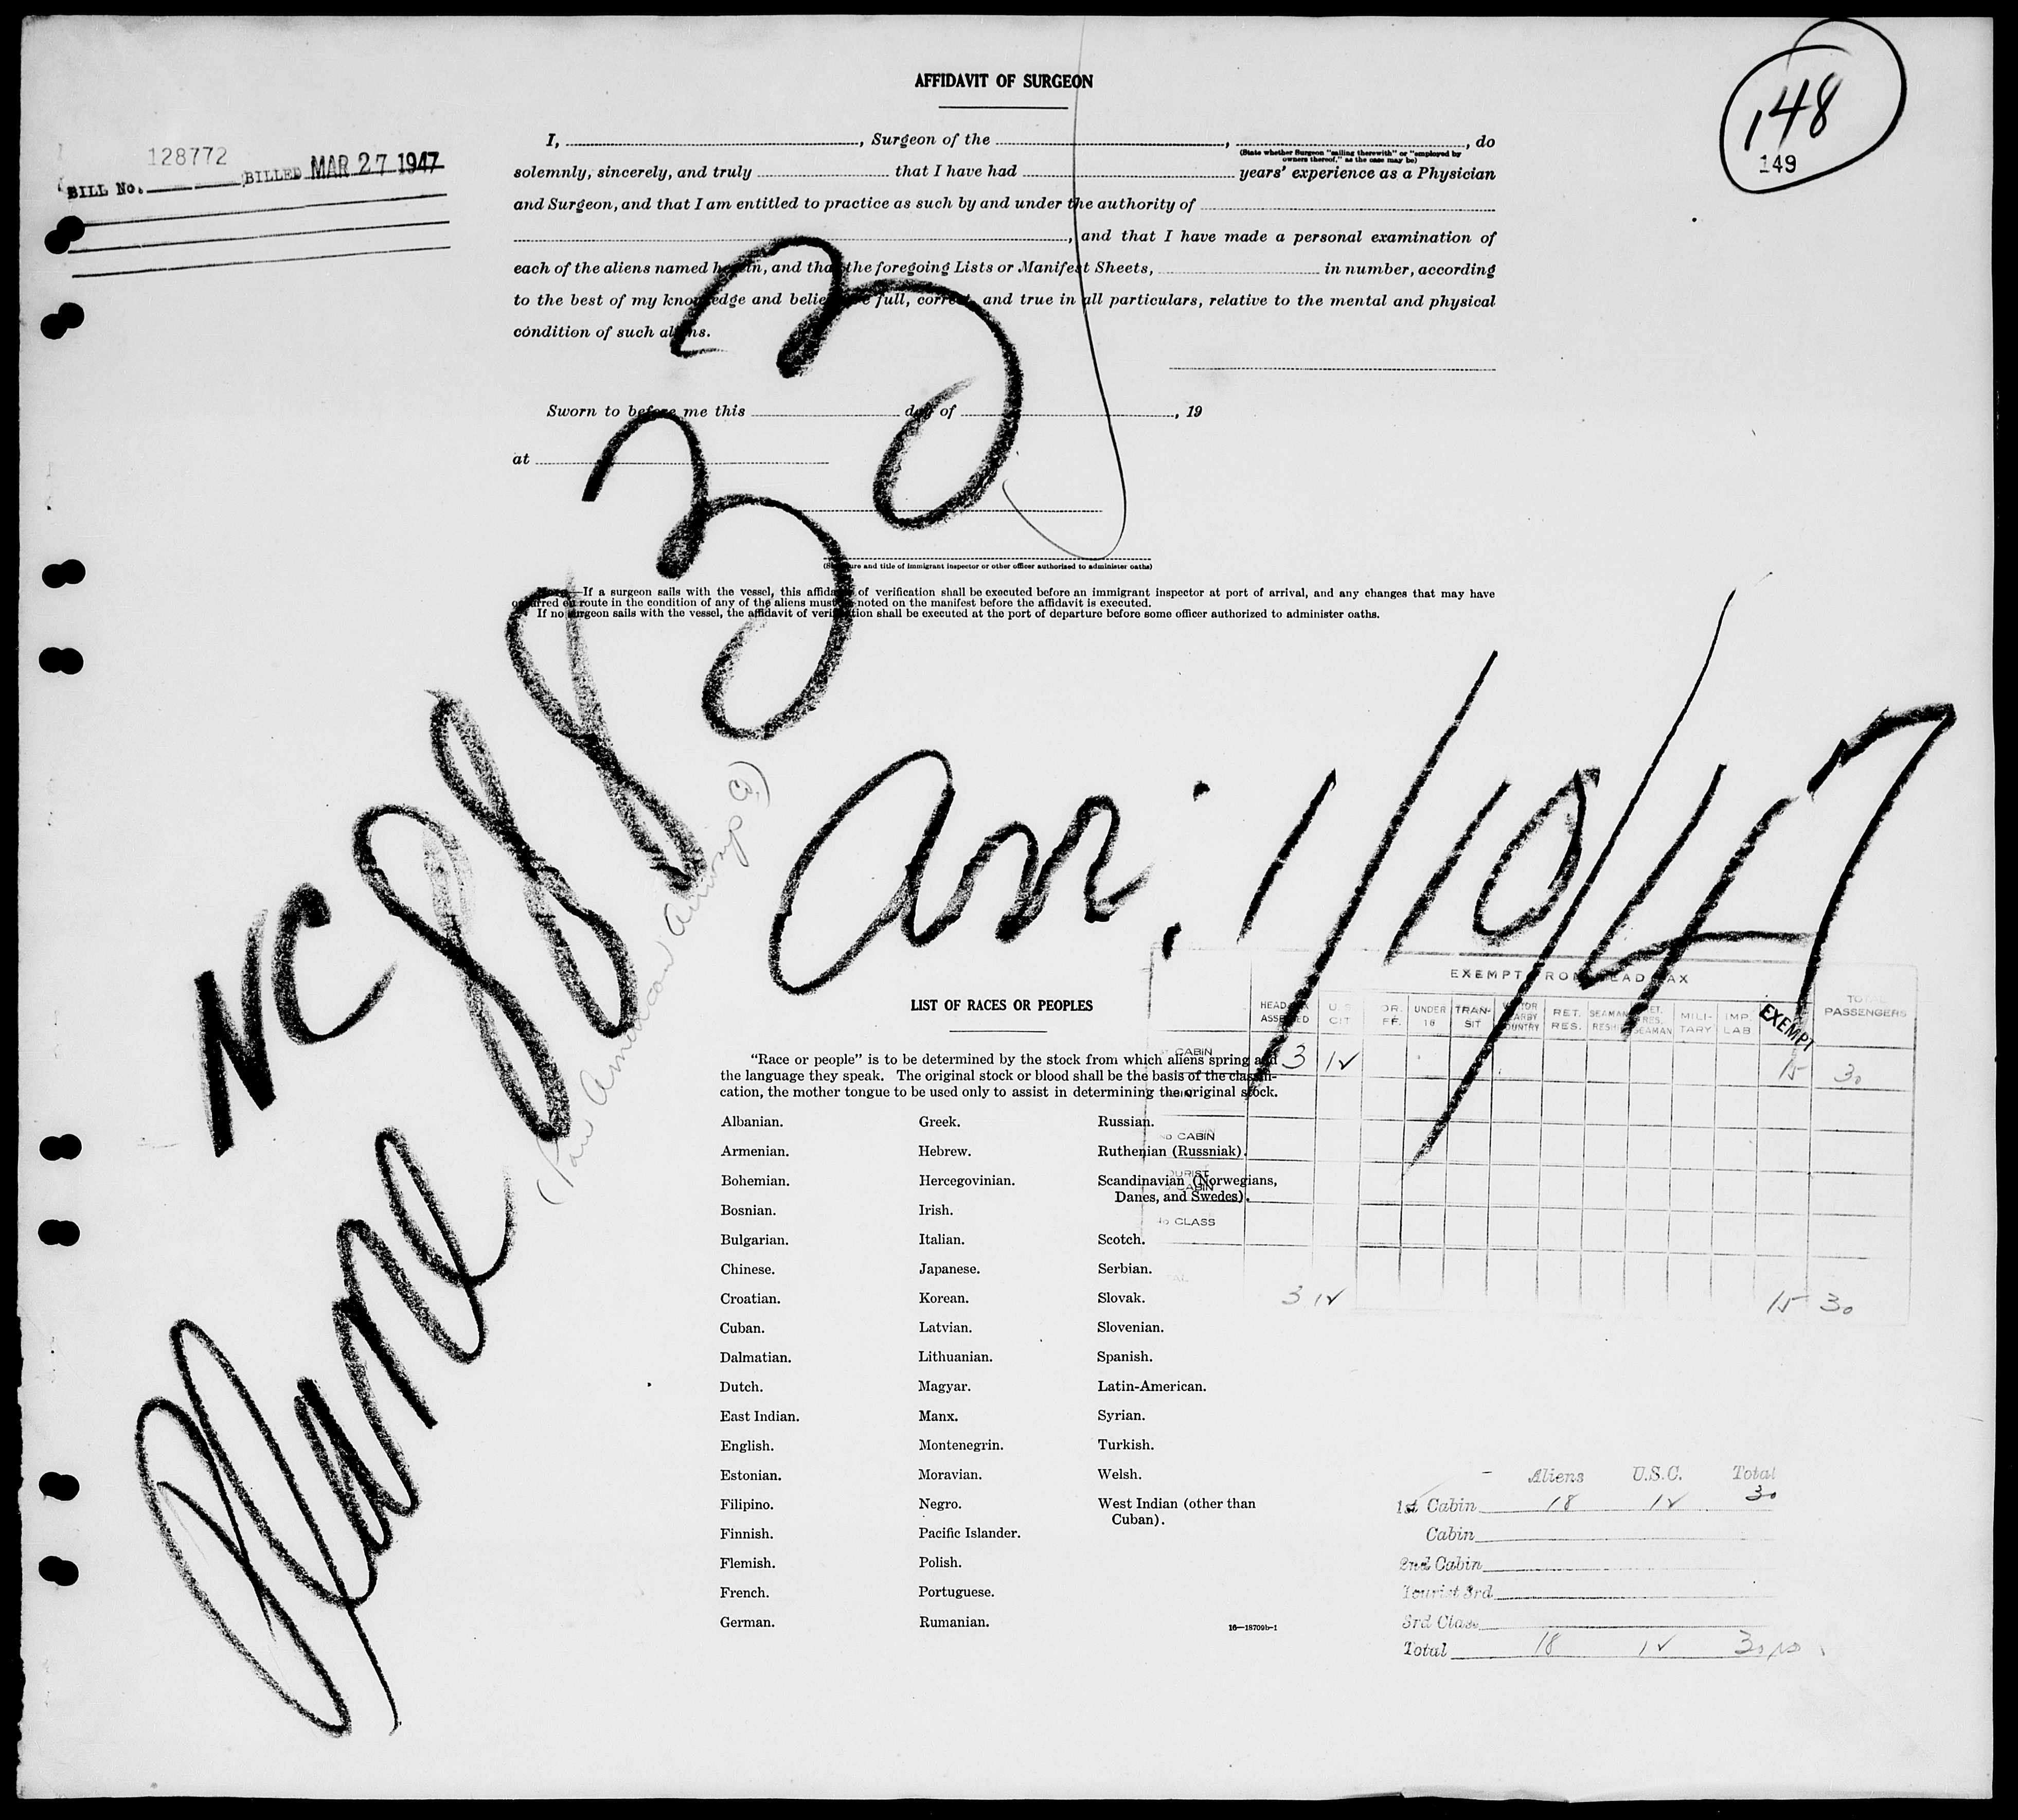 AFFIDAVIT OF SURGEON
148
149
128772
BILL No. BILLED MAR 27 1947
I, , Surgeon of the , , do
(State whether Surgeon "sailing therewith" or "employed by owners thereof," as the case may be)
solemnly, sincerely, and truly that I have had years' experience as a Physician
and Surgeon, and that I am entitled to practice as such by and under the authority of
, and that I have made a personal examination of
each of the aliens named herein, and that the foregoing Lists or Manifest Sheets, in number, according
to the best of my knowledge and belief, are full, correct, and true in all particulars, relative to the mental and physical
condition of such aliens.
Sworn to before me this day of , 19
at
(Signature and title of immigrant inspector or other officer authorized to administer oaths)
Note.—If a surgeon sails with the vessel, this affidavit of verification shall be executed before an immigrant inspector at port of arrival, and any changes that may have
occurred en route in the condition of any of the aliens must be noted on the manifest before the affidavit is executed.
If no surgeon sails with the vessel, the affidavit of verification shall be executed at the port of departure before some officer authorized to administer oaths.
Plane NC 88833
(Pan American Airways Co.)
Arr. 1/10/47
EXEMPT FROM HEAD TAX
HEAD TAX ASSESSED U.S. CIT. UNDER 16 TRANSIT RET. RES. MILITARY IMP LAB EXEMPT TOTAL PASSENGERS
CABIN 3 12 15 30
CABIN
TOURIST
CABIN
CLASS
3 12 15 30
LIST OF RACES OR PEOPLES
"Race or people" is to be determined by the stock from which aliens spring and
the language they speak. The original stock or blood shall be the basis of the classifi-
cation, the mother tongue to be used only to assist in determining the original stock.
Albanian.
Armenian.
Bohemian.
Bosnian.
Bulgarian.
Chinese.
Croatian.
Cuban.
Dalmatian.
Dutch.
East Indian.
English.
Estonian.
Filipino.
Finnish.
Flemish.
French.
German.
Greek.
Hebrew.
Hercegovinian.
Irish.
Italian.
Japanese.
Korean.
Latvian.
Lithuanian.
Magyar.
Manx.
Montenegrin.
Moravian.
Negro.
Pacific Islander.
Polish.
Portuguese.
Rumanian.
Russian.
Ruthenian (Russniak).
Scandinavian (Norwegians,
Danes, and Swedes).
Scotch.
Serbian.
Slovak.
Slovenian.
Spanish.
Latin-American.
Syrian.
Turkish.
Welsh.
West Indian (other than
Cuban).
16—18709b-1
Aliens U.S.C. Total
1st Cabin 18 12 30
Cabin
2nd Cabin
Tourist 3rd
3rd Class
Total 18 12 30